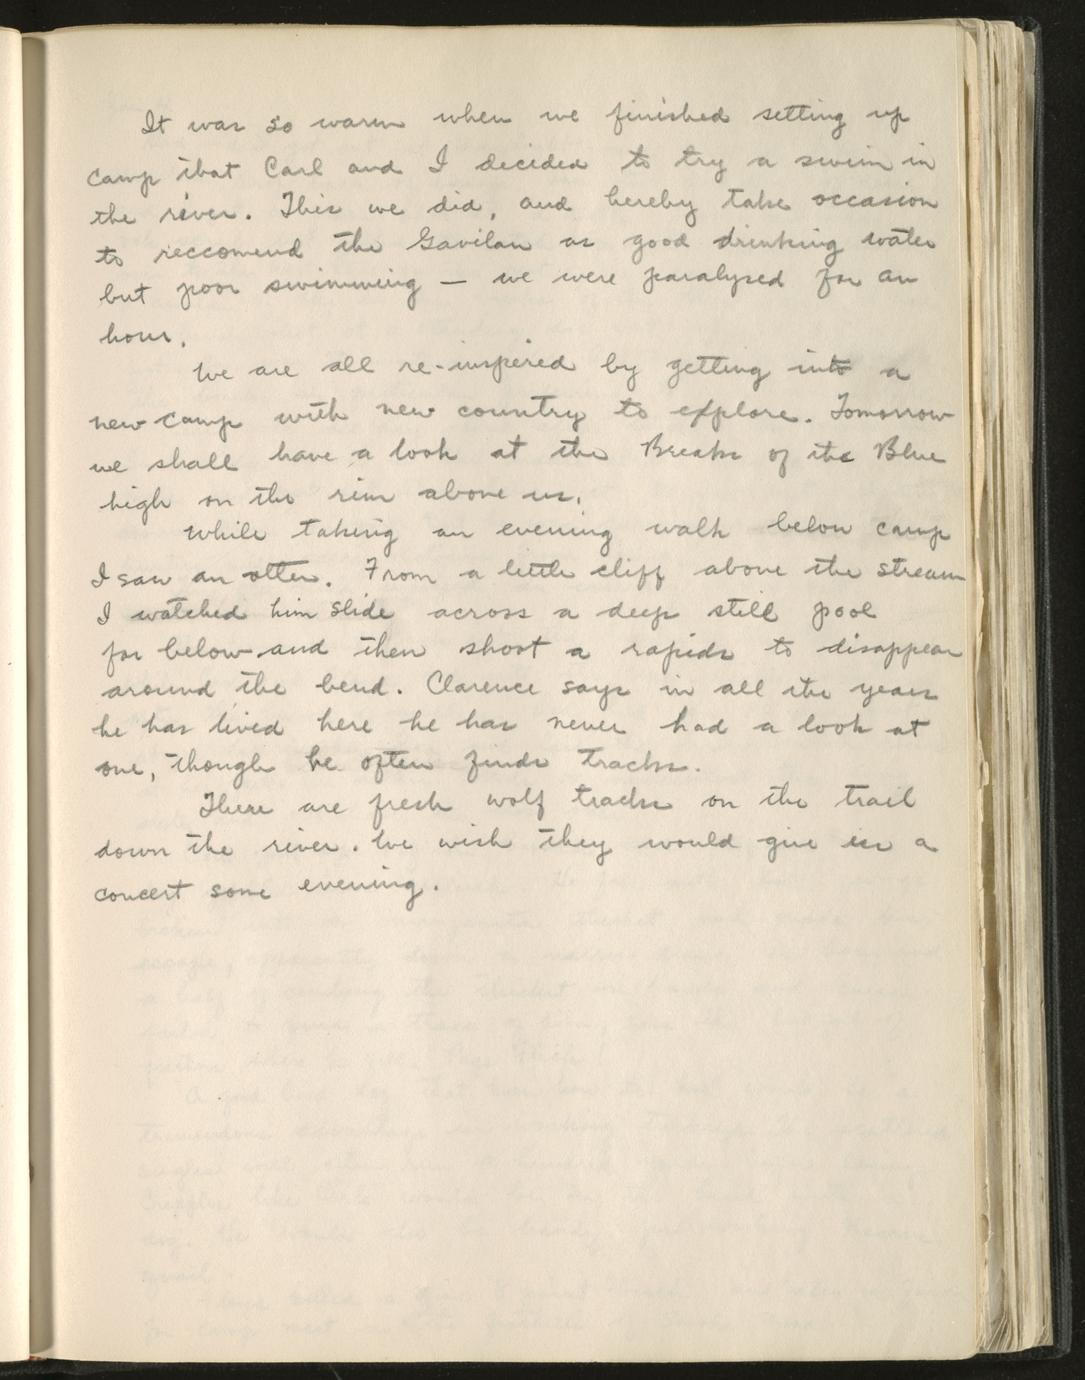 It was so warm when we finished setting up
camp that Carl and I decided to try a swim in
the river. This we did, and hereby take occasion
to reccomend the Gavilan as good drinking water
but poor swimming — we were paralyzed for an
hour.
We are all re-inspired by getting into a
new camp with new country to explore. Tomorrow
we shall have a look at the Breaks of the Blue
high on the rim above us.
While taking an evening walk below camp
I saw an otter. From a little cliff above the stream
I watched him slide across a deep still pool
far below and then shoot a rapids to disappear
around the bend. Clarence says in all the years
he has lived here he has never had a look at
one, though he often finds tracks.
There are fresh wolf tracks on the trail
down the river. We wish they would give us a
concert some evening.